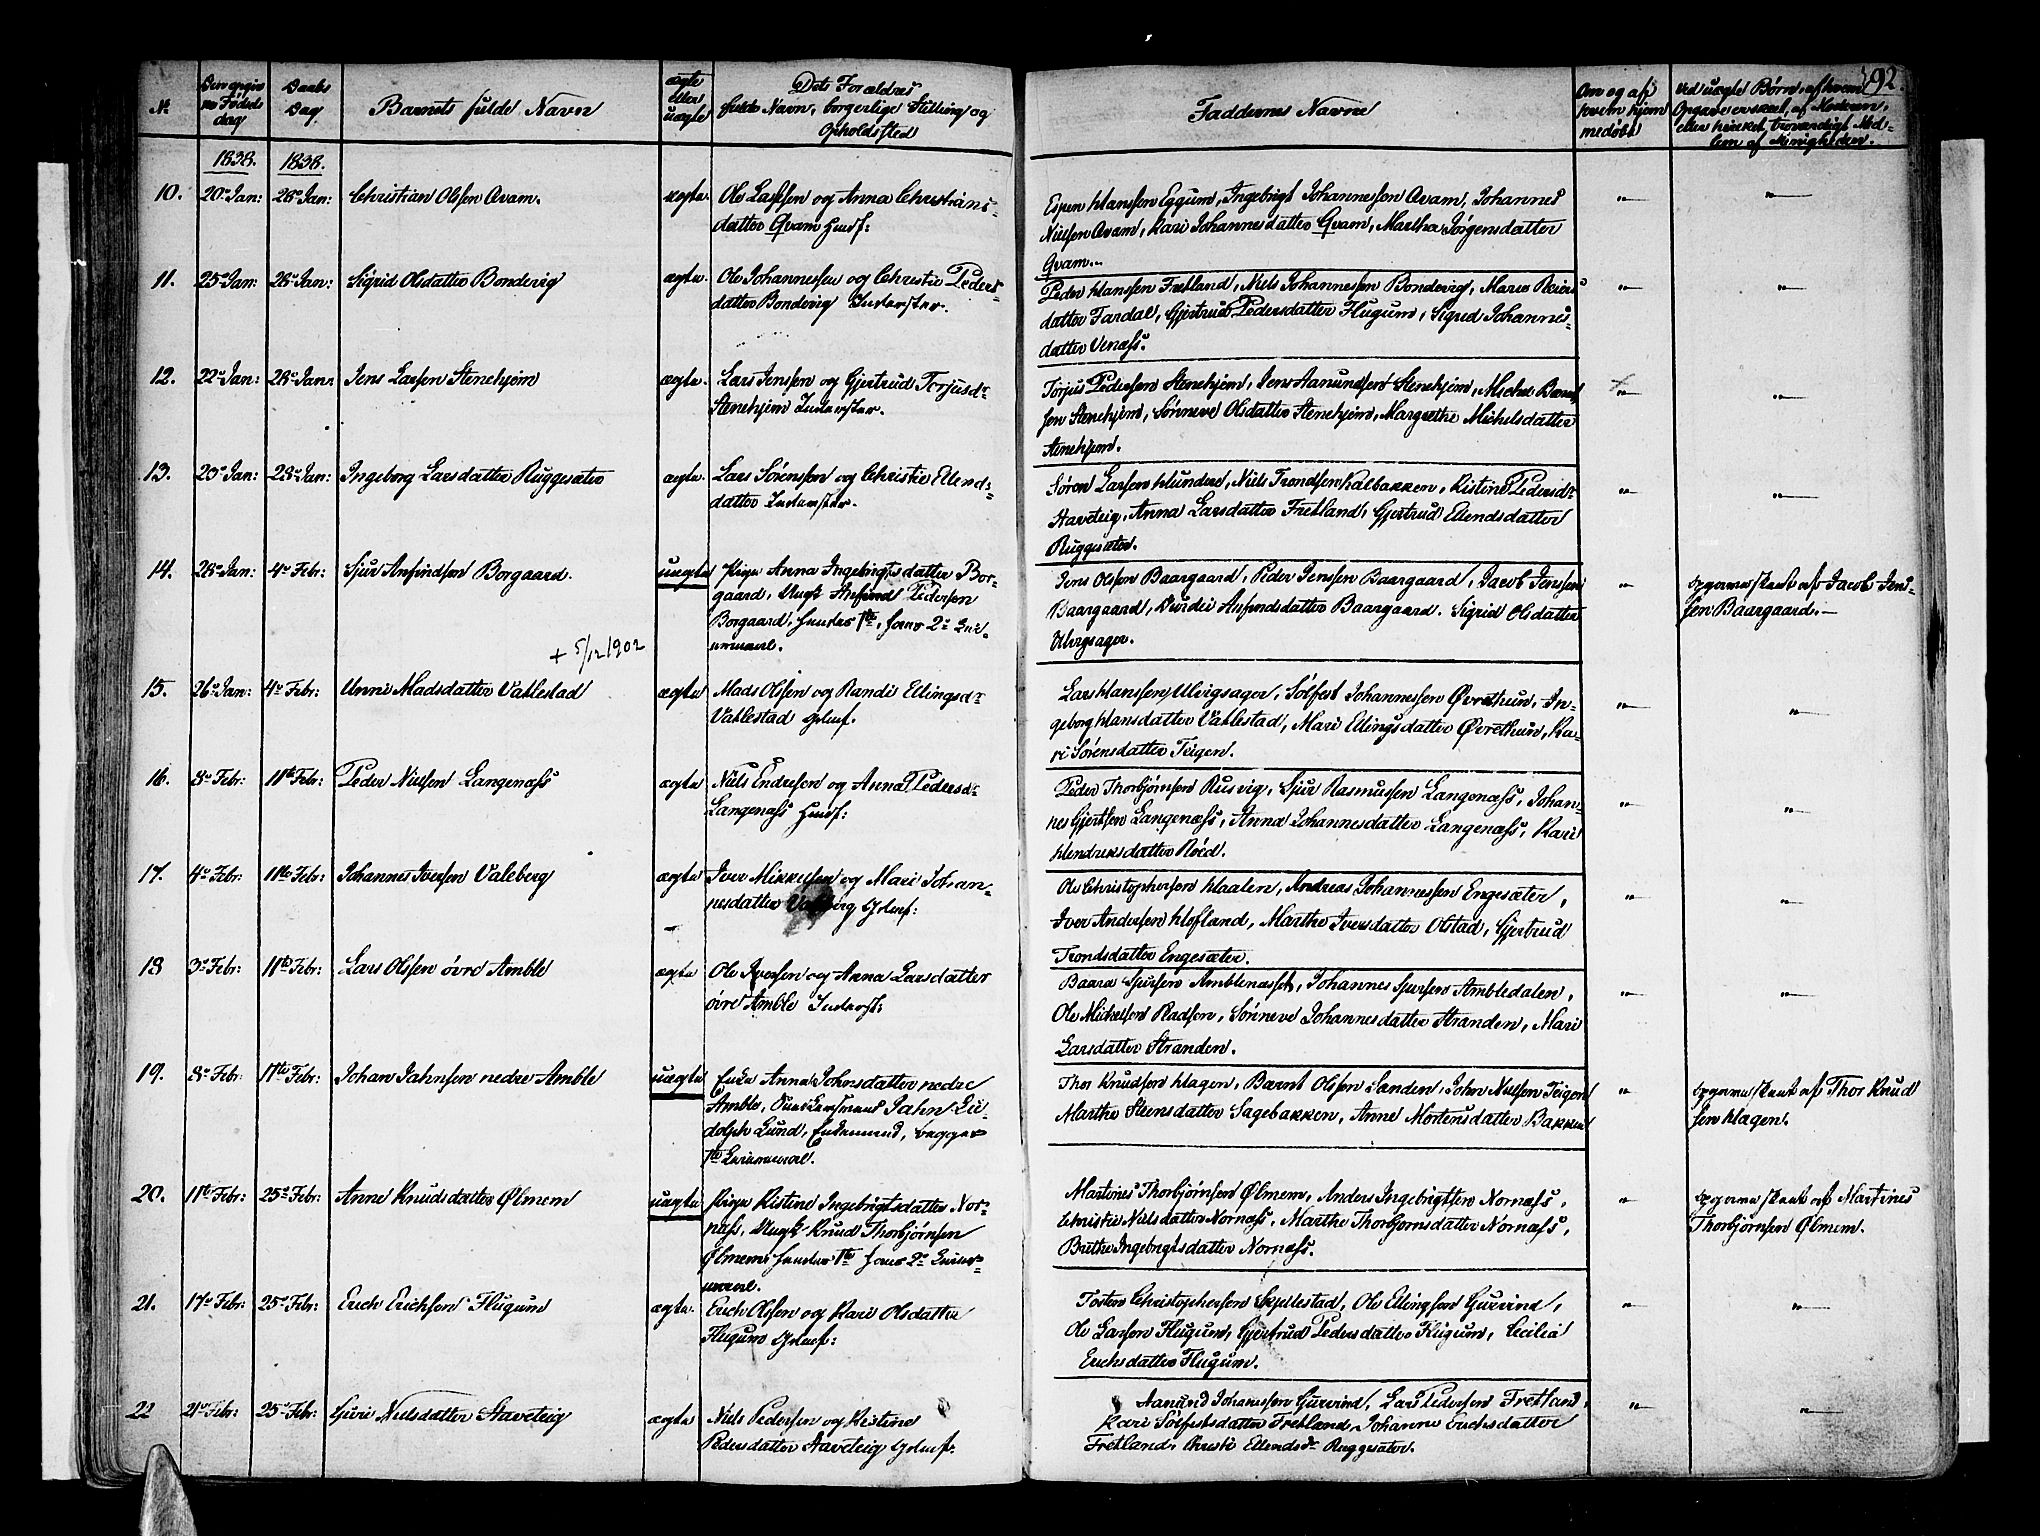 192.
No
Den opgivne Fødselsdag
Daabs Dag
Barnets fulde Navn
ægte eller uægte
Dets Forældres
fulde Navn, borgerlige Stilling og
Opholdsted
Faddernes Navne
Om og af hvem hjemmedøbt
Ved uægte Børn, af hvem
Opgave er skeet, af Moderen,
eller hvilket troværdigt Med-
lem af Menigheden.
1838. 1838.
10. 20de Jan: 28de Jan: Christian Olssen Qvam. ægte.
Ole Larssen og Anna Christians-
datter Qvam Husf:
Espen Hanssen Eggum, Ingebrigt Johannessen Qvam, Johannes
Nielsen Qvam, Kari Johannesdatter Qvam, Martha Jørgensdatter
Qvam.
11. 25de Jan: 28de Jan: Sigrid Olsdatter Bondevig ægte.
Ole Johannessen og Christie Peders-
datter Bondevig Inderster.
Peder Hanssen Fretland, Niels Johannessen Bondevig, Maria
datter Fardal, Gjertrud Pedersdatter Flugum, Sigrid Johannes-
datter Venæss.
12. 22de Jan: 28de Jan: Jens Larssen Stenehjem ægte.
Lars Jenssen og Gjertrud Torjusdr
Stenehjem Inderster.
Torjus Pedersen Stenehjem, Jens Aamundsen Stenehjem, Michel
sen Stenehjem, Sønneve Olsdatter Stenehjem, Margrethe Michelsdatter
Stenehjem.
13. 20de Jan: 28de Jan: Ingeborg Larsdatter Ruggesæter ægte.
Lars Sørenssen og Christie Ellends-
datter Inderster.
Søren Larssen Hundere, Niels Trondsen Kalbakken, Kistine Pedersdr
Staveteig, Anna Larsdatter Fretland, Gjertrud Ellendsdatter
Ruggesæter.
14. 28de Jan: 4de Febr: Sjur Anfindsen Borgaard. uægte
Pige Anna Ingebrigtsdatter Bor-
gaard, Ungk Anfind Pedersen
Borgaard, hendes 1te, hans 2de Leie-
rmaal.
Jens Olssen Baargaard, Peder Jenssen Baargaard, Jacob Jenssen
Baargaard, Durdei Anfinsdatter Baargaard. Sigrid Olsdatter
Ulvigsager.
opgivne skeet af Jacob Jens-
sen Baargaard.
+ 5/12 1902
15. 26de Jan: 4de Febr: Unni Madsdatter Vallestad ægte
Mads Olssen og Randi Ellingsdr
Vallestad Gdmf.
Lars Hanssen Ulvigsager, Sølfest Johannessen Øvrethun, In-
geborg Hansdatter Vallestad, Mari Ellingsdatter Øvrethun, Ka-
ri Sørensdatter Teigen.
16. 8de Febr: 11te Febr: Peder Nielsen Langenæss ægte
Niels Endresen og Anna Pedersdr
Langenæss Husf:
Peder Thorbjørnsen Rusvig, Sjur Rasmussen Langenæss, Johan-
nes Gjertsen Langenæss, Anna Johannesdatter Langenæss, Kari
Hendriksdatter Røed.
17. 4de Febr: 11te Febr: Johannes Iversen Valeberg ægte
Iver Mikkelsen og Mari Johan-
nesdatter Valeberg Gdmf:
Ole Christophersen Haalen, Andreas Johannessen Engesæter,
Iver Andersen Hofland, Marthe Iversdatter Olstad, Gjertrud
Trondsdatter Engesæter.
18 3de Febr: 11te Febr: Lars Olssen øvre Amble ægte
Ole Iversen og Anna Larsdatter
øvre Amble Inderst.
Baard Sjursen Amblenæsset, Johannes Sjursen Ambledalen,
Ole Michelsen Radsen, Sønneve Johannesdatter Stranden, Mari
Larsdatter Stranden.
19. 8de Febr: 11te Febr: Johan Jahnsen nedre Amble uægte
Enke Anna Johnsdatter nedre
Amble, Jahn Lu-
dolph Lund, Enkemand, begges
1te Leiermaal.
Thor Knudsen Hagen, Bærnt Olssen Sanden, John Nielsen Teigen
Marthe Steensdatter Sagebakken, Anne Mortensdatter Bakken
opgivne skeet af Thor Knud
sen Hagen.
20. 11te Febr: 25de Febr: Anne Knudsdatter Ølmem uægte
Pige Kistine Ingebrigtsdatter Nor-
næss, Ungk Knud Thorbjørnsen
Ølmem, hendes 1te hans 2de Leier-
maal.
Martines Thorbjørnsen Ølmem, Anders Ingebrigtsen Nornæss,
Christie Nielsdatter Nornæss, Marthe Thorbjørnsdatter Nornæss,
Brithe Ingebrigtsdatter Nornæss.
opgivne skeet af Martines
Thorbjørnsen Ølmem.
21. 17de Febr: 25de Febr: Erich Erichsen Flugum ægte.
Erich Olssen og Kari Olsdatter
Flugum Gdmf:
Tosten Christophersen Skjellestad, Ole Ellingsen Gurvind,
Ole Larssen Flugum, Gjertrud Pedersdatter Flugum, Cicilia
Erichsdatter Flugum.
22 21de Febr: 25de Febr: Guri Nielsdatter Staveteig ægte
Niels Pedersen og Kistine
Pedersdatter Staveteig Gdmf.
Aanund Johannessen Gurvind, Lars Pedersen Fretland,
Kari Sølfestsdatter Fretland, Johanne Erichsdatter
Fretland, Christi Ellendsdr Ruggesæter.